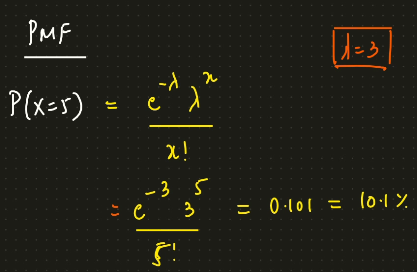 PMF
λ=3
P(x=5) = e^{-λ} λ^x / x!
= e^{-3} 3^5 / 5! = 0.101 = 10.1%